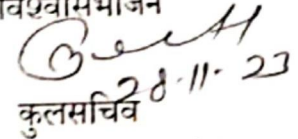 विश्वासभाजन
28-11-23
कुलसचिव